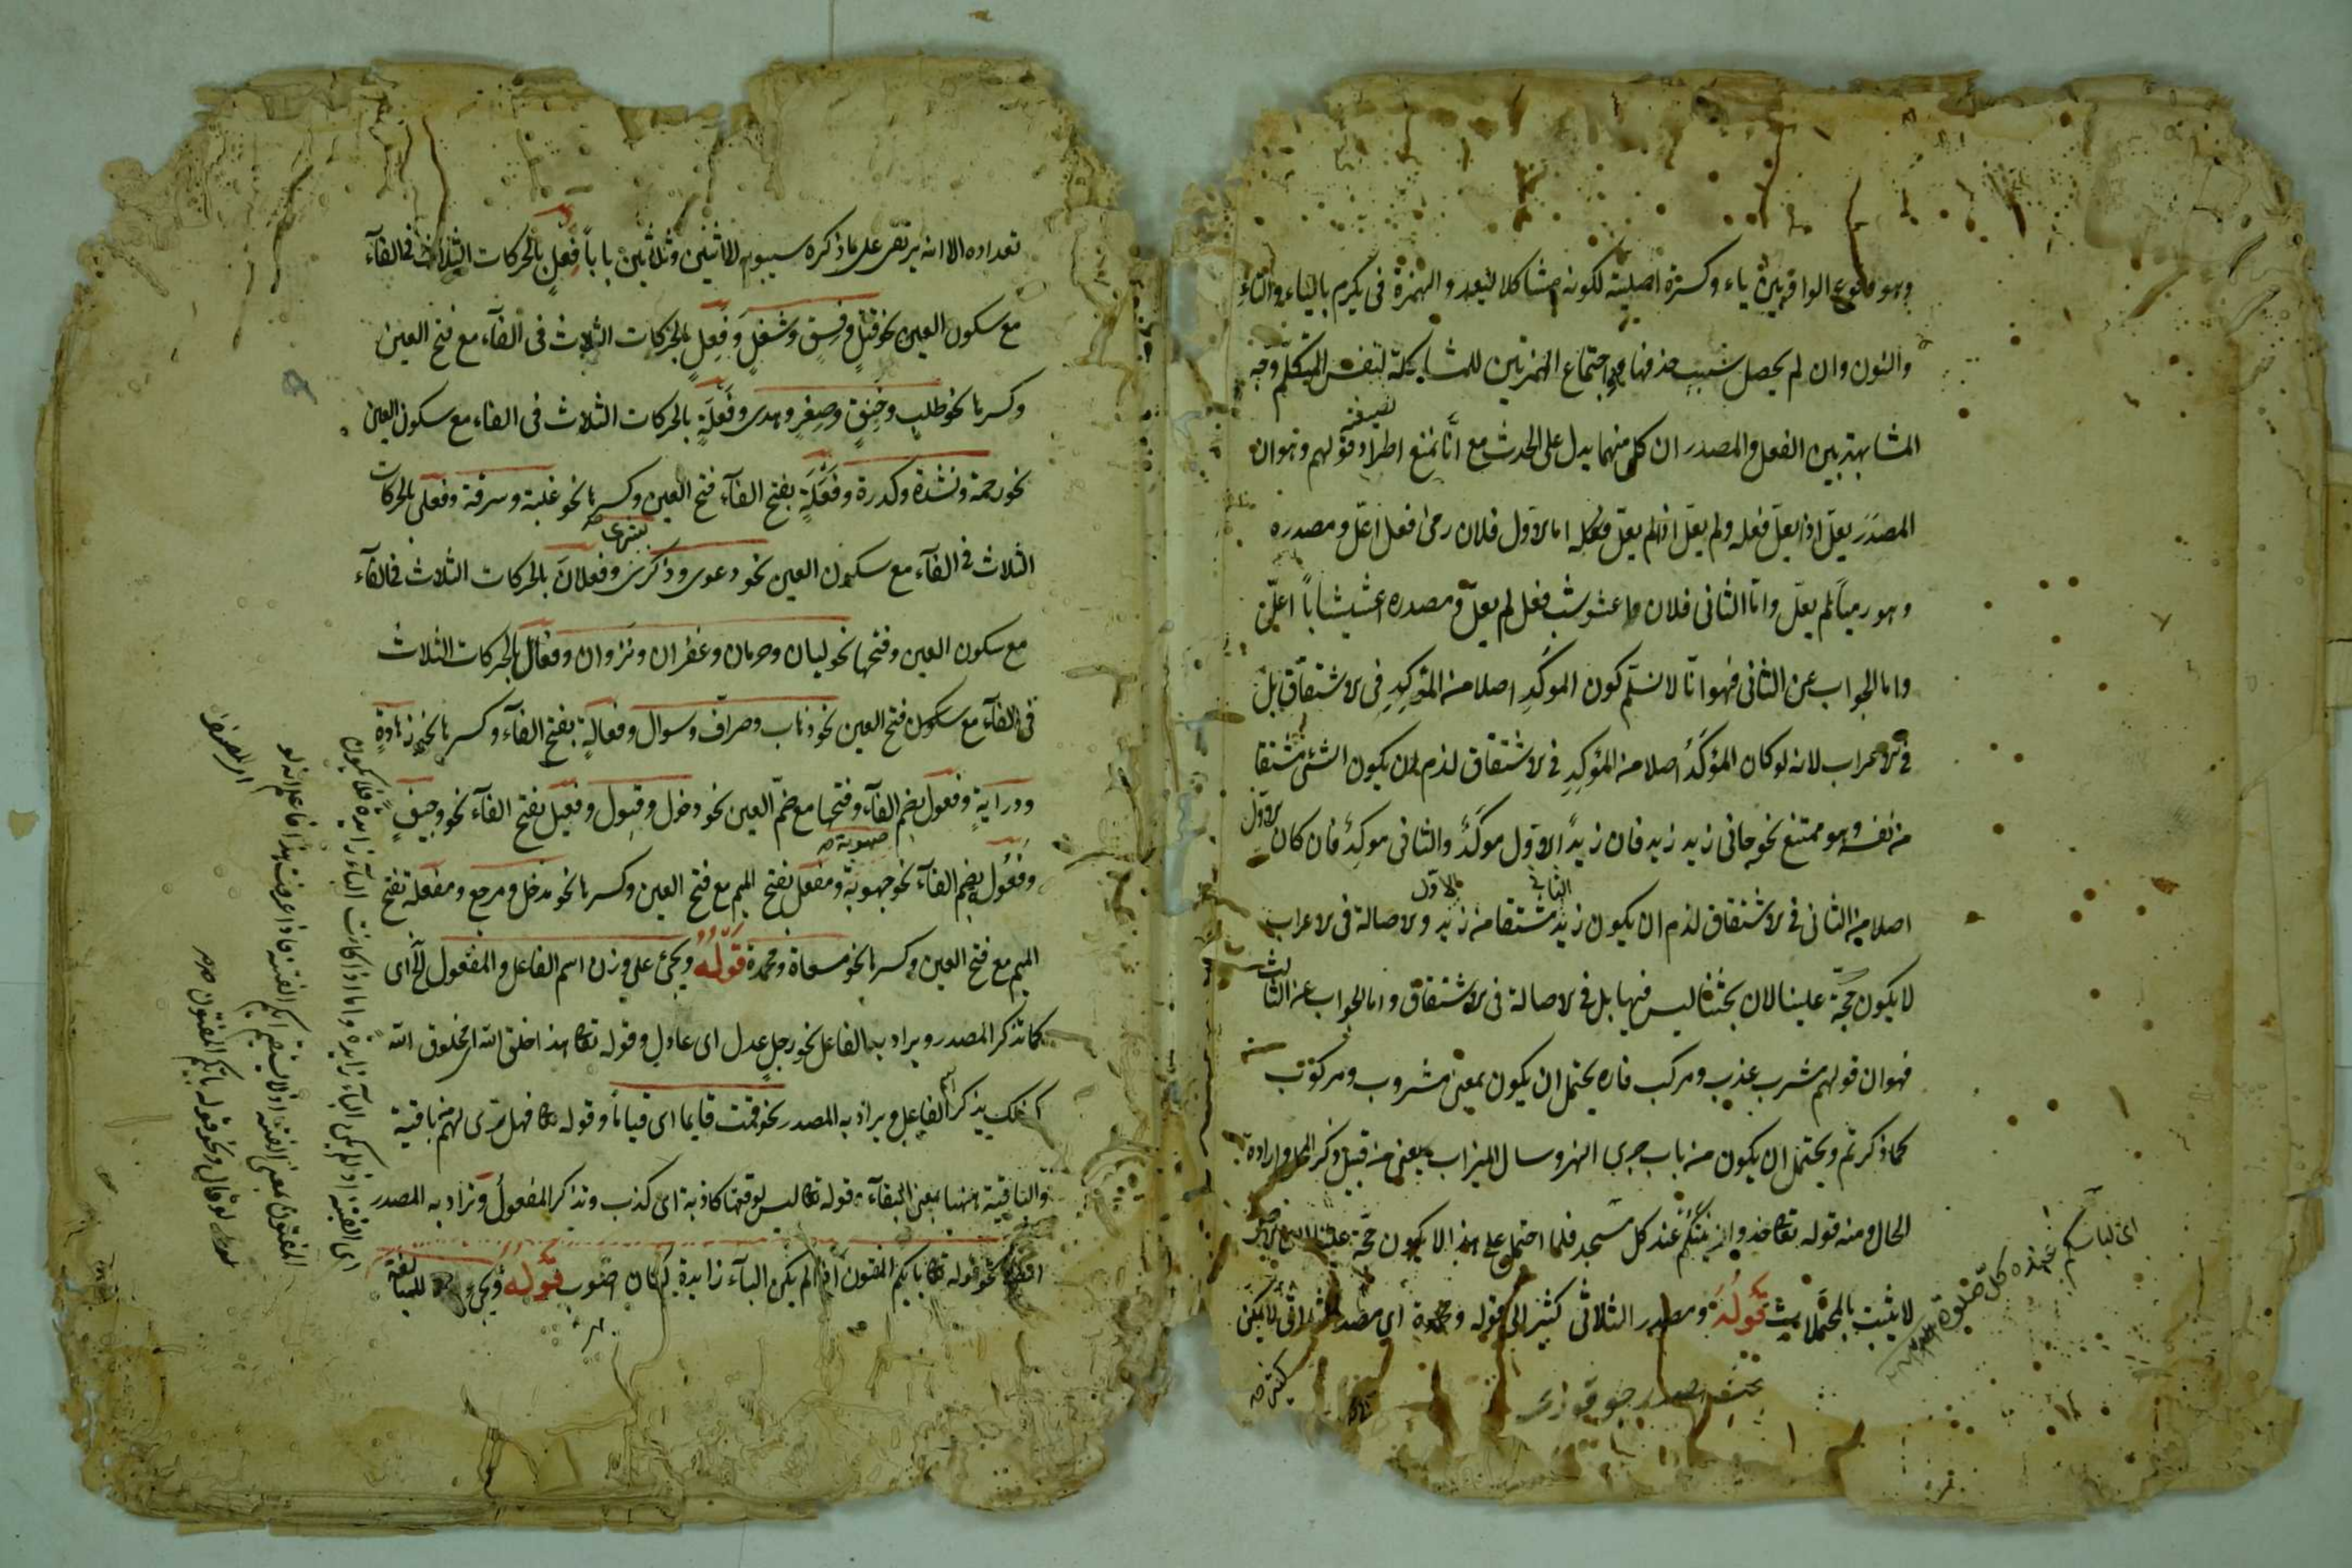 وهو وقوع الواو بين ياء وكسرة اصلية لكونه مشاكلا ليعد والهمزة فى يكرم بالياء والتاء
والنون وان لم يحصل بسبب حذفها اجتماع الهمزتين للمشاكلة لنفس المتكلم وجه
المشابهة بين الفعل والمصدر ان كل منهما يدل على الحدث مع انا نمنع اطراد قولهم وهو ان
المصدر يعل اذا يعل فعله ولم يعل اذا لم يعل فعله اما الاول فلان رمى فعل اعل ومصدره
وهو رميا لم يعل واما الثانى فلان اعشوشب فعل لم يعل ومصدره اعشيشابا اعل
واما الجواب عن الثانى فهو انا لا نسلم كون الموكد اصلا من المؤكد فى الاشتقاق بل
فى الاعراب لانه لو كان المؤكد اصلا من المؤكد فى الاشتقاق لزم ان يكون الشئ مشتقا
من نفسه وهو ممتنع نحو جانى زيد زيد فان زيد الاول موكد والثانى موكد فان كان الاول
اصلا من الثانى فى الاشتقاق لزم ان يكون زيد الثانى مشتقا من زيد الاول والاصالة فى الاعراب
لا يكون حجة علينا لان بحثنا ليس فيها بل فى الاصالة فى الاشتقاق واما الجواب عن الثالث
فهو ان قولهم مشرب عذب ومركب فاره يحتمل ان يكون بمعنى مشروب ومركوب
كما ذكرتم ويحتمل ان يكون من باب جرى النهر وسال الميزاب يعنى من قبيل ذكر المحل وارادة
الحال ومنه قوله تعالى خذوا زينتكم عند كل مسجد فلما احتمل على هذا لا يكون حجة علينا
لا يثبت بالمحتملات قوله ومصدر الثلاثى كثير الى قوله اى مصدر الثلاثى
كثير
اى لباسكم عند كل صلوة
تعداده الا انه يرتقى على ما ذكره سيبويه الى اثنين وثلاثين بابا فعل بالحركات الثلاث فى الفآء
مع سكون العين نحو قتل وفسق وشغل وفعل بالحركات الثلاث فى الفآء مع فتح العين
وكسرها نحو طلب وخنق وصغر وهدى وفعلة بالحركات الثلاث فى الفاء مع سكون العين
نحو رحمة ونشدة وكدرة وفعلة بفتح الفآء فتح العين وكسرها نحو غلبة وسرقة وفعلى بالحركات
الثلاث فى الفآء مع سكون العين نحو دعوى وذكرى بشرى وفعلان بالحركات الثلاث فى الفآء
مع سكون العين وفتحها نحو ليان وحرمان وغفران ونزوان وفعال بالحركات الثلاث
فى الفآء مع فتح العين نحو ذهاب وصراف وسوال وفعالة بفتح الفآء وكسرها نحو زهادة
ودراية وفعول بضم الفآء وفتحها مع ضم العين نحو دخول وقبول وفعيل بفتح الفآء نحو وجيف
وفعول بضم الفآء نحو صهوبة ومفعل بفتح الميم مع فتح العين وكسرها نحو مدخل ومرجع ومفعلة بفتح
الميم مع فتح العين وكسرها نحو مسعاة ومحمدة قوله ويجئ على وزن اسم الفاعل والمفعول الخ اى
كما تذكر المصدر ويراد به الفاعل نحو رجل عدل اى عادل وقوله تعالى هذا خلق الله اى مخلوق الله
كذلك يذكر اسم الفاعل ويراد به المصدر نحو قمت قايما اى قياما وقوله تعالى فهل ترى لهم من باقية
والباقية ههنا بمعنى البقآء وقوله تعالى ليس لوقعتها كاذبة اى كذب وتذكر المفعول وتراد به المصدر
نحو قوله تعالى بايكم المفتون اذا لم يكن البآء زايدة قوله ويجئ للمبالغة
اى الفتنة اذا لم يكن البآء زايدة واما اذا كانت البآء زايدة فلا يكون
المفتون بمعنى الفتنة